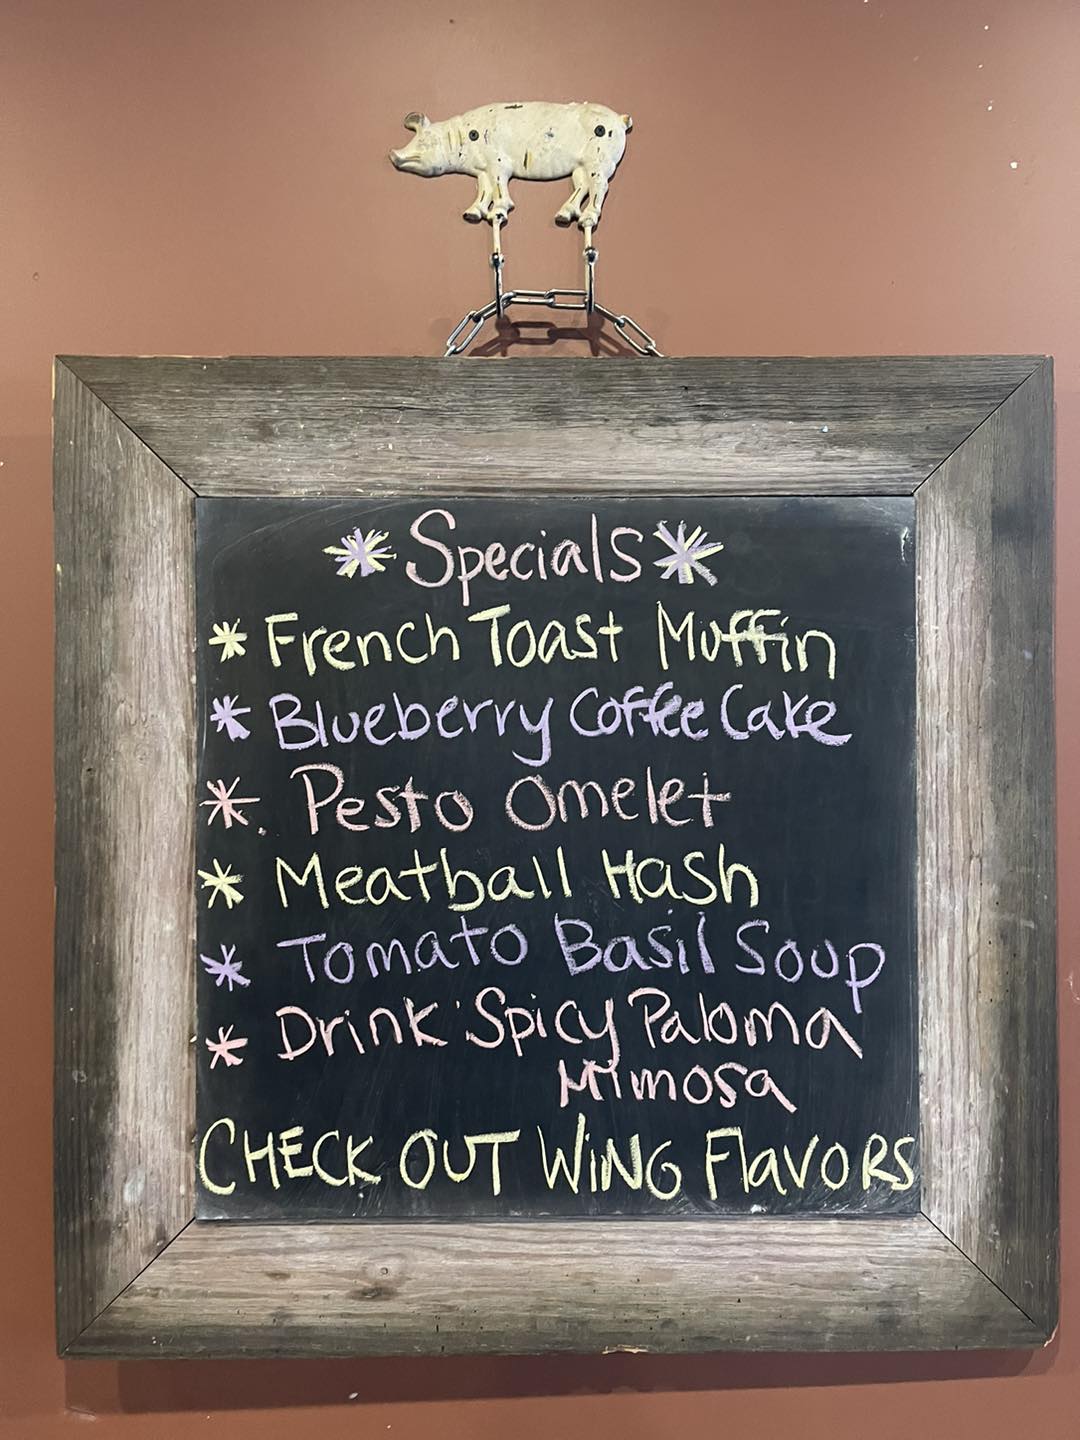 *Specials*
* French Toast Muffin
* Blueberry Coffee Cake
* Pesto Omelet
* Meatball Hash
* Tomato Basil Soup
* Drink: Spicy Paloma
Mimosa
CHECK OUT WiNG FlavoRS